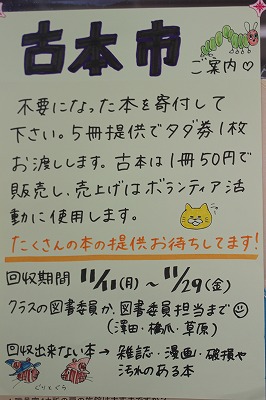 古本市
ご案内♡
不要になった本を寄付して
下さい。5冊提供でタダ券1枚
お渡しします。古本は1冊50円で
販売し、売上げはボランティア活
動に使用します。
たくさんの本の提供お待ちしてます!
回収期間 11/11(月)〜11/29(金)
クラスの図書委員か、図書委員担当まで
(澤田・横瓜・草原)
回収出来ない本→雑誌・漫画・破損や
汚れのある本
ぐりとぐら